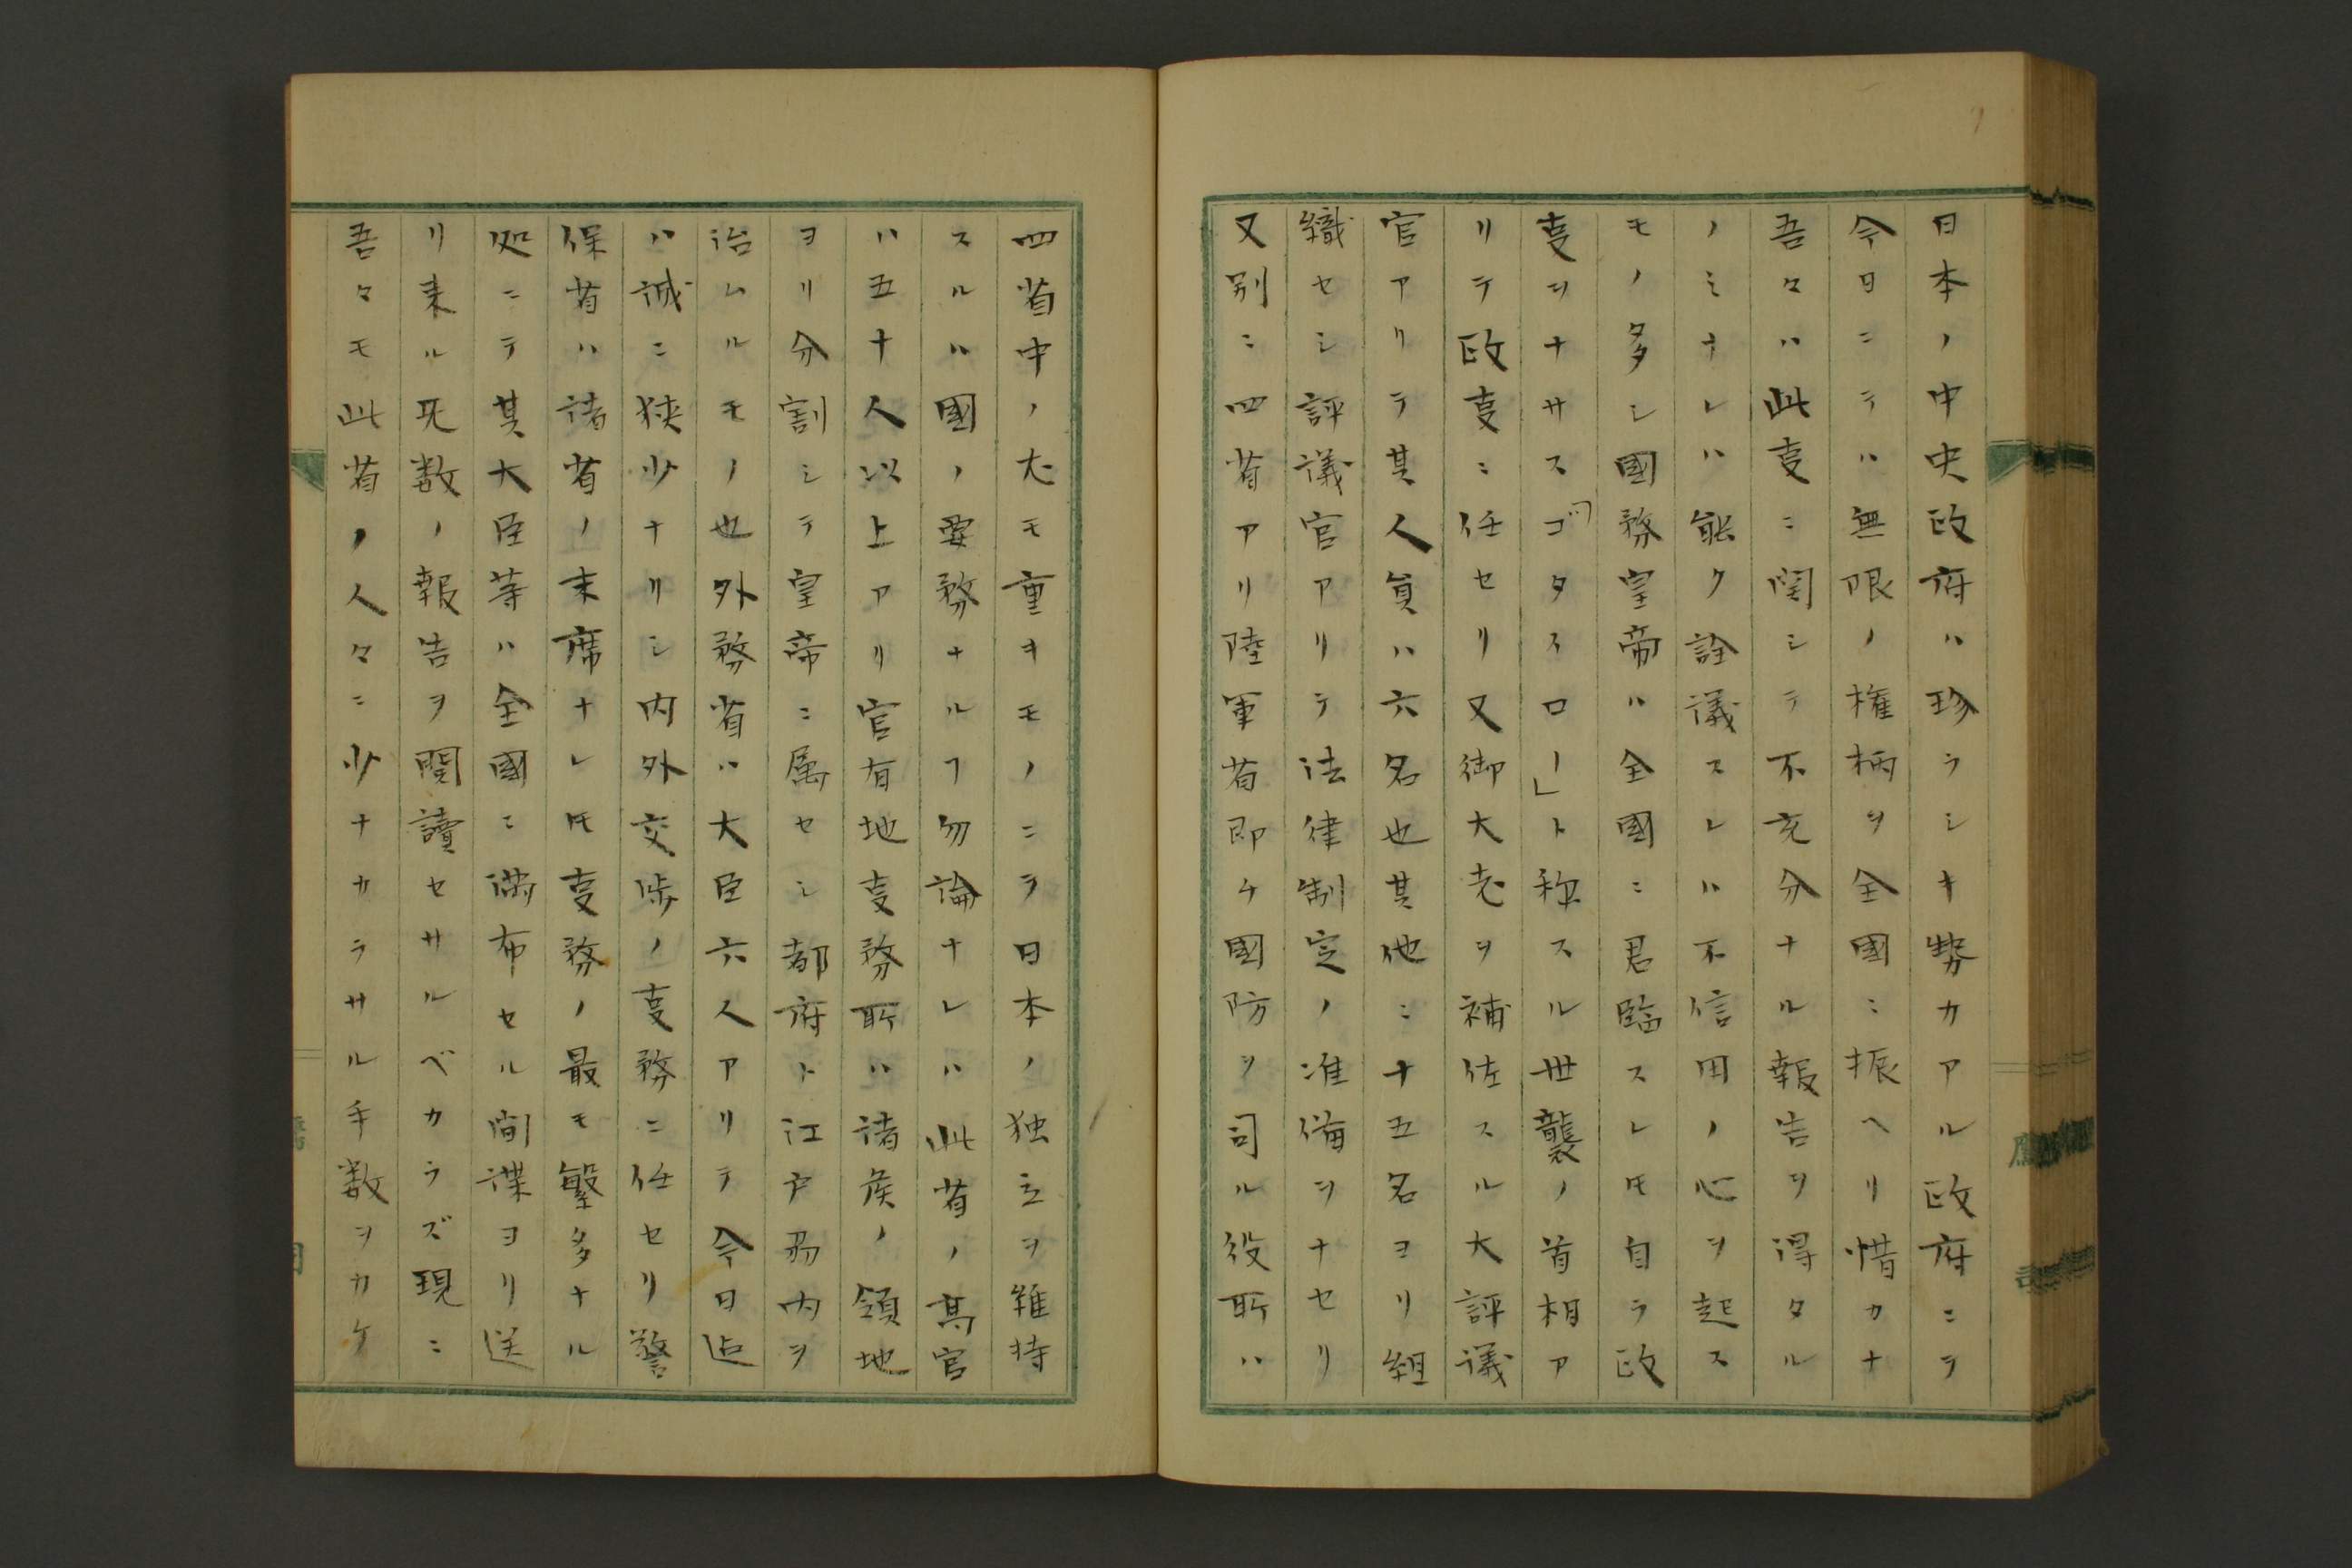 日本ノ中央政府ハ珍ラシキ勢カアル政府ニテ
今日ニテハ無限ノ権柄ヲ全國ニ振ヘリ惜カナ
吾々ハ此叓ニ関シテ不充分ナル報告ヲ得タル
ノミナレハ能ク詮議スレハ不信用ノ心ヲ起ス
モノ多シ國務皇帝ハ全國ニ君臨スレ𪜈自ラ政
叓ヲナサス「ゴタスロー」ト称スル世襲ノ首相ア
リテ政叓ニ任セリ又御大老ヲ補佐スル大評議
官アリテ其人員ハ六名也其他ニ十五名ヨリ組
織セシ評議官アリテ法律制定ノ准備ヲナセリ
又別ニ四省アリ陸軍省即チ國防ヲ司ル役所ハ
四省中ノ尤モ重キモノニテ日本ノ独立ヲ維持
スルハ國ノ要務ナルヿ勿論ナレハ此省ノ高官
ハ五十人以上アリ官有地叓務所ハ諸侯ノ領地
ヨリ分割シテ皇帝ニ属セシ都府ト江戸昜内ヲ
治ムルモノ也外務省ハ大臣六人アリテ今日迠
ハ誠ニ狭少ナリシ内外交渉ノ叓務ニ任セリ警
保省ハ諸省ノ末席ナレ𪜈叓務ノ最モ繁多ナル
処ニテ其大臣等ハ全國ニ満布セル間諜ヨリ送
リ来ル旡数ノ報告ヲ閲讀セサルベカラズ現ニ
吾々モ此省ノ人々ニ少ナカラサル手数ヲカケ